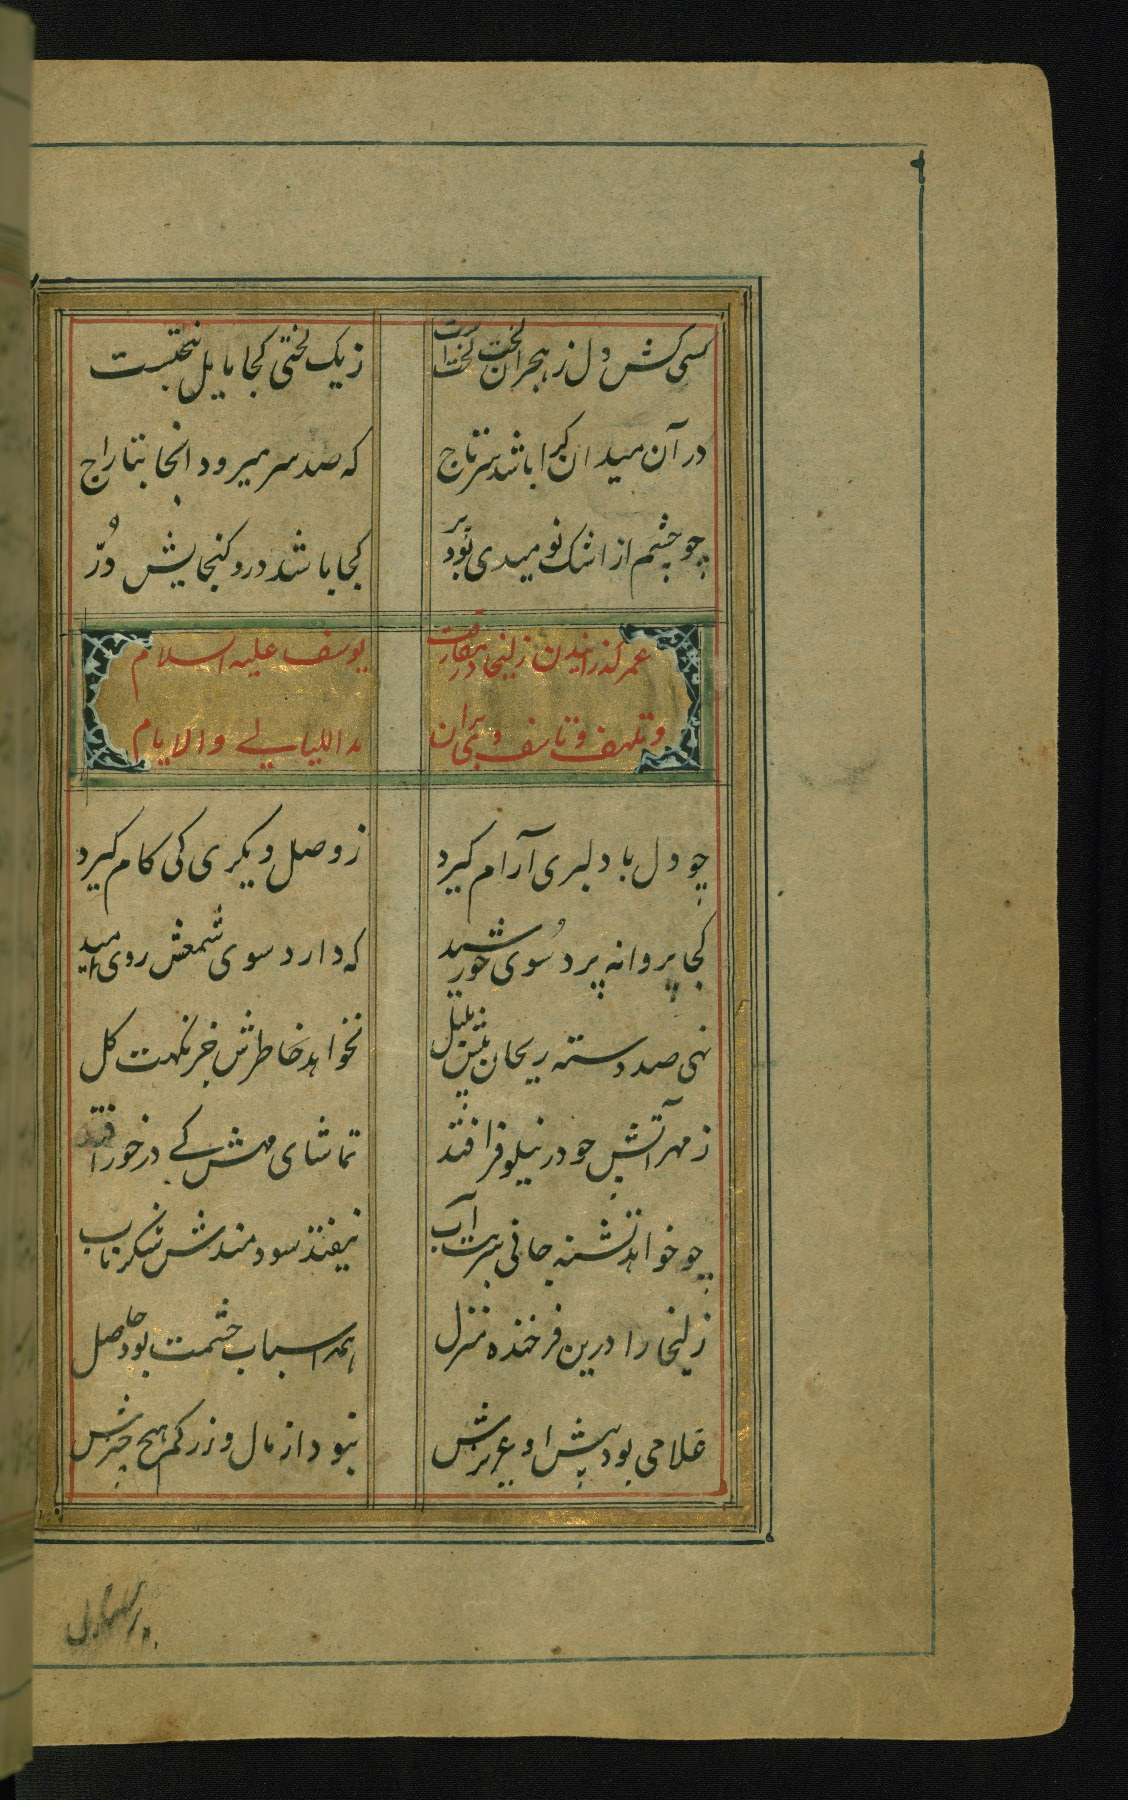 کسی کش دل ز هجران لخت لخت است
ز یک لختی کجا مایل بتختست
در آن میدان کرا باشد سر تاج
که صد سر میرود انجا بتاراج
چو چشم از اشک نومیدی بود پر
کجا باشد درو کنجایش دُرّ
عمر کذرانیدن زلیخا در مفارقت
یوسف علیه السلام
و تلهف و تاسف بر هجران
مد اللیالی والایام
چو دل با دلبری آرام کیرد
ز وصل دیکری کی کام کیرد
کجا پروانه پرد سُوی خورشید
که دارد سوی شمعش روی امید
نهی صد دسته ریحان پیش بلبل
نخواهد خاطرش جز نکهت کل
ز مهر آتش چو در نیلوفر افتد
تماشای مهش کے در خور افتد
چو خواهد تشنه جانی شربت آب
نیفتد سودمندش شکر ناب
زلیخا را درین فرخنده منزل
همه اسباب حشمت بود حاصل
غلامی بود پیش او عزیزش
نبود از مال و زر کم هیچ چیزش